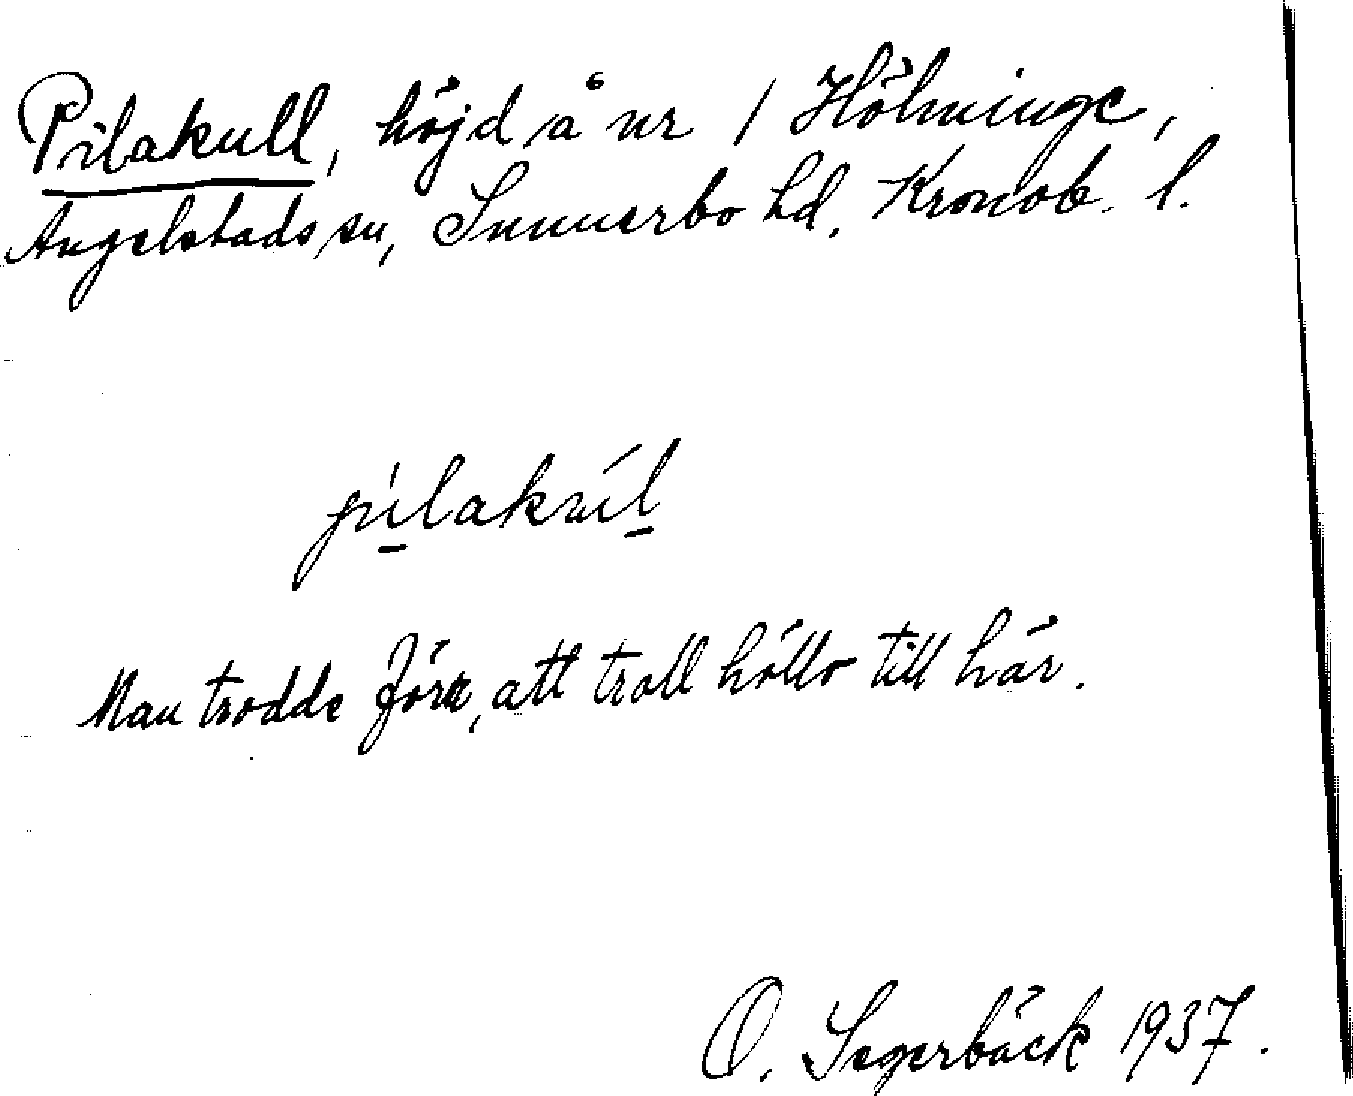 Pilakull, höjd å nr 1 Hölminge,
Angelstads sn, Sunnerbo hd, Kronob. l.
pìlakúl
Man trodde förr, att troll höllo till här.
O. Segerbäck 1937.